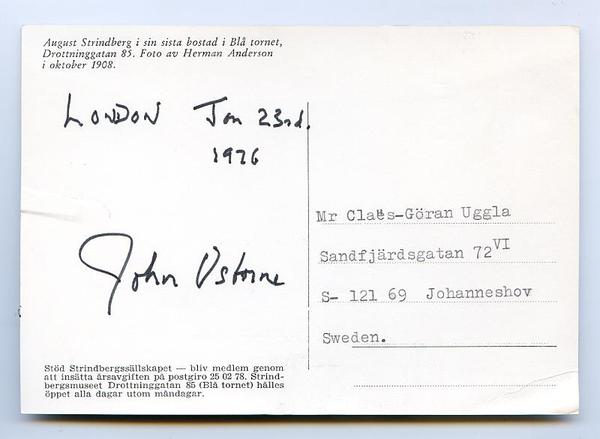 August Strindberg i sin sista bostad i Blå tornet,
Drottninggatan 85. Foto av Herman Anderson
i oktober 1908.
LONDON Jan 23rd.
1976
John Osborne
Mr Claës-Göran Uggla
Sandfjärdsgatan 72 VI
S- 121 69 Johanneshov
Sweden.
Stöd Strindbergssällskapet — bliv medlem genom
att insätta årsavgiften på postgiro 25 02 78. Strind-
bergsmuseet Drottninggatan 85 (Blå tornet) hålles
öppet alla dagar utom måndagar.